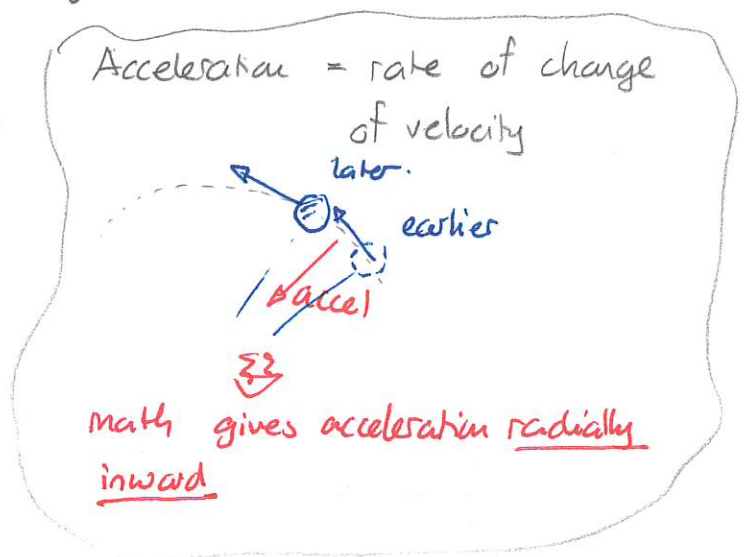 Acceleration = rate of change
of velocity
later.
earlier
accel
math gives acceleration radially
inward